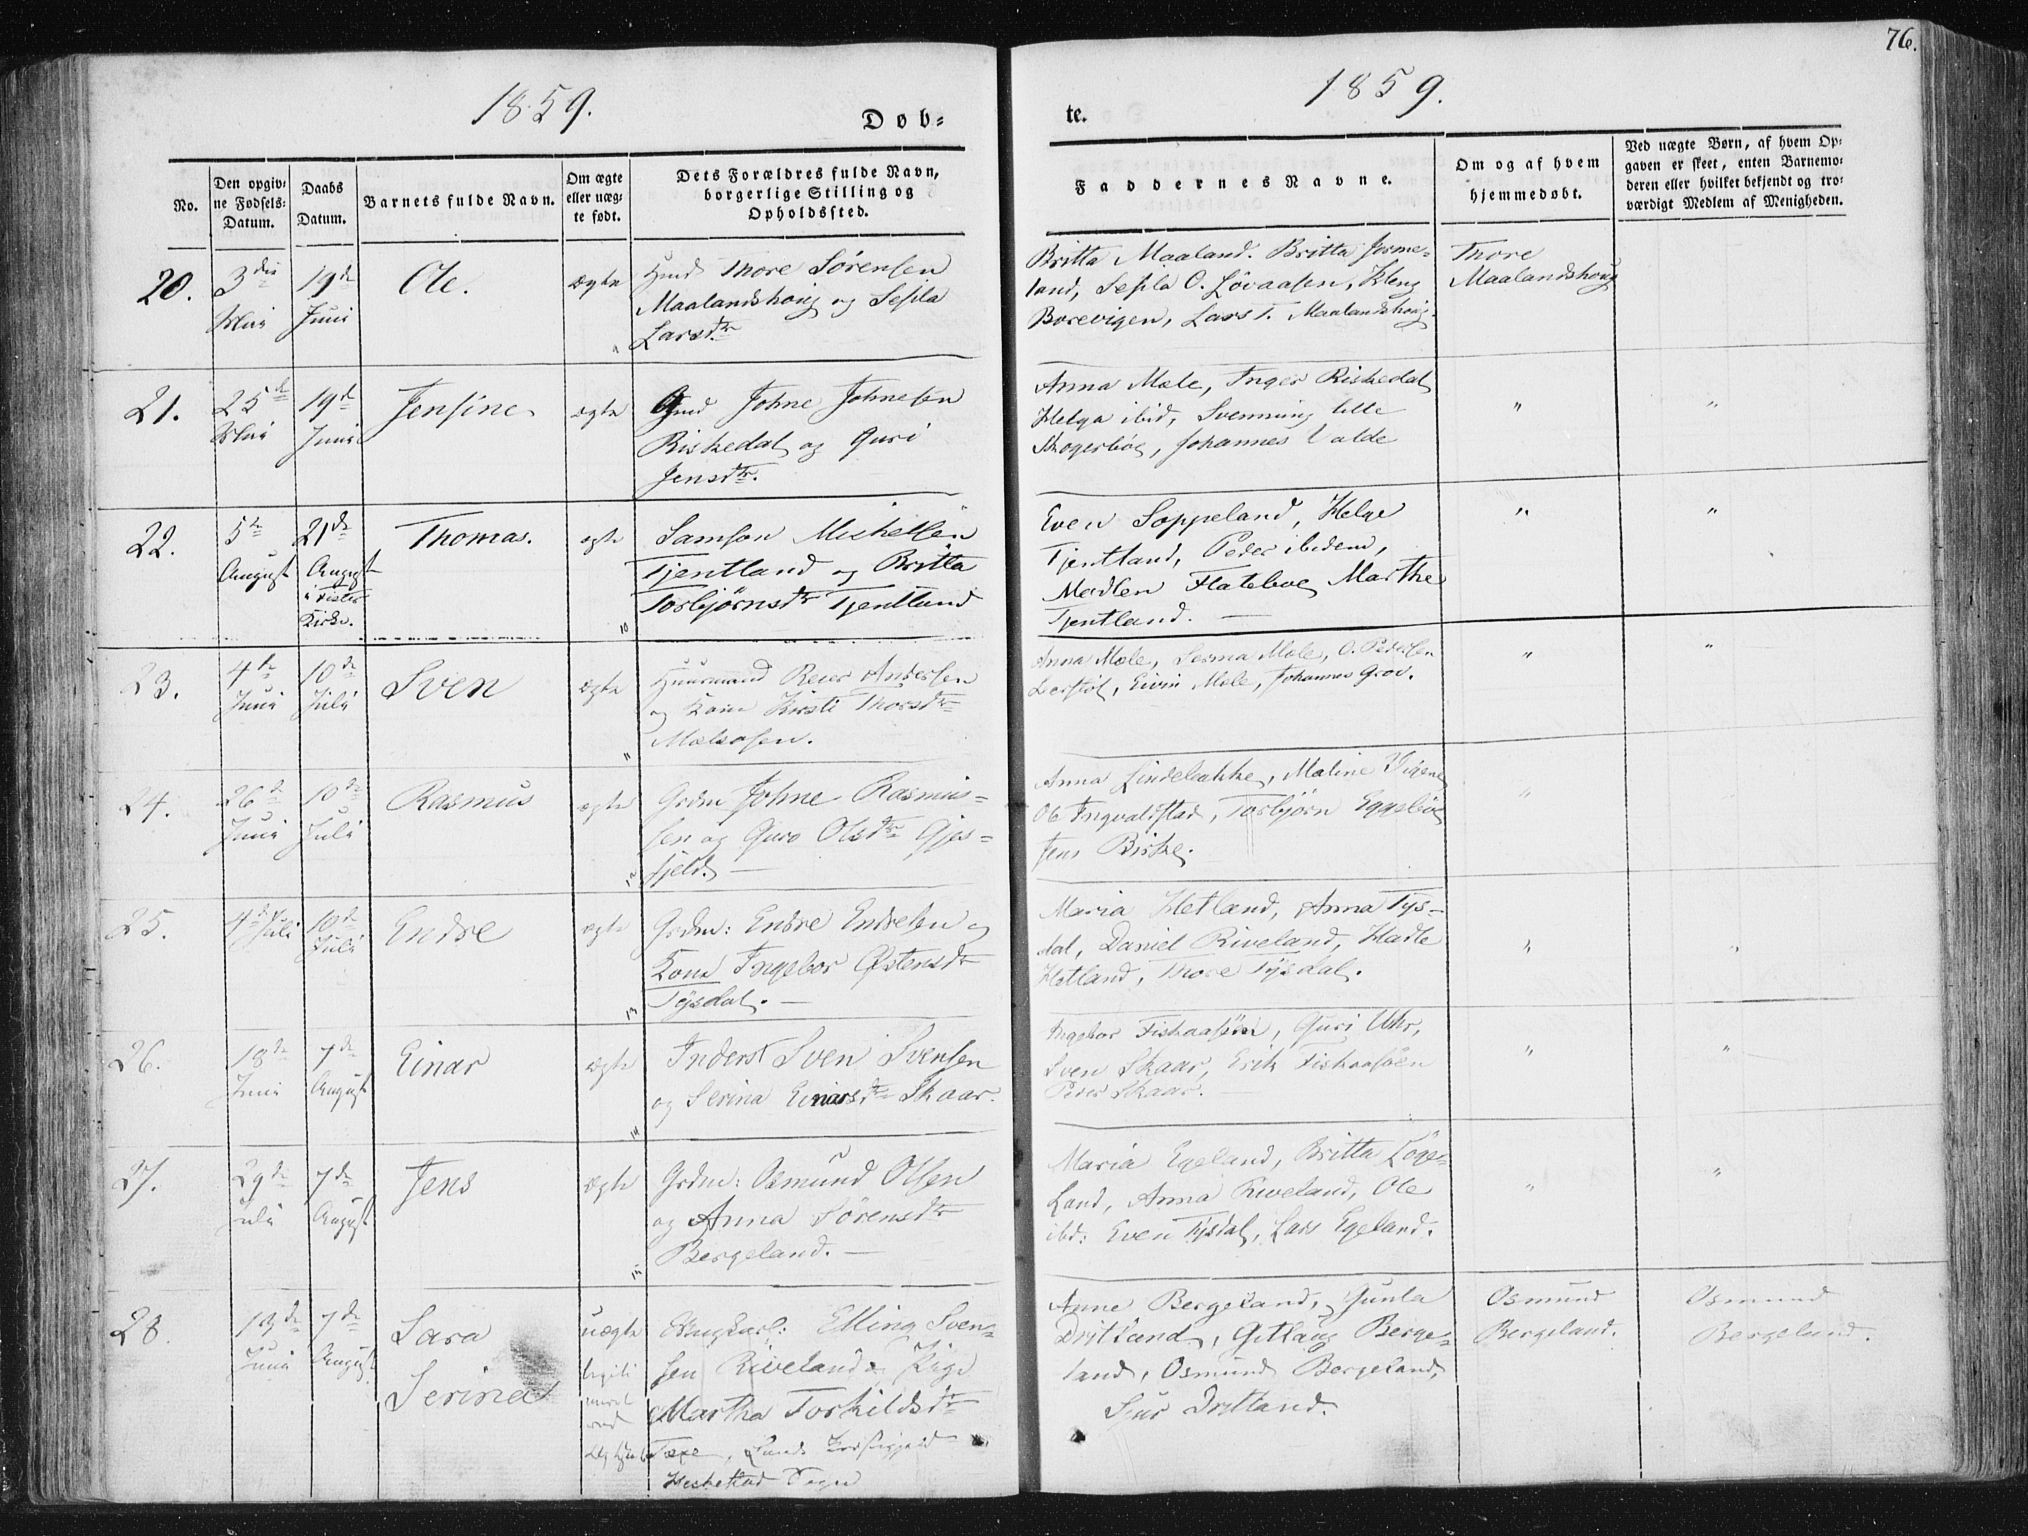 76.
1859.
Døb-
te.
1859.
No.
Den opgiv-
ne Fødsels-
Datum.
Daabs
Datum.
Barnets fulde Navn.
Om ægte
eller uæg-
te født.
Dets Forældres fulde Navn,
borgerlige Stilling og
Opholdssted.
Faddernes Navne.
Om og af hvem
hjemmedøbt.
Ved uægte Børn, af hvem Op-
gaven er skeet, enten Barnemo-
deren eller hvilket bekjendt og tro-
værdigt Medlem af Menigheden.
20.
3die
Mai
19de
Juni
Ole.
ægte
Huusmd Thore Sørensen
Maalandshoug og Sesla
Larsdtr
Britta Maaland. Britta Jørme-
land, Sesla O. Løvaasen, Kleng
Borevigen, Lars T. Maalandshoug.
Thore
Maalandshoug
21.
25de
Mai
19de
Juni
Jensine
ægte
Gmd Johne Johnesen
Riskedal og Guri
Jensdtr.
Anna Mæle, Inger Riskedal
Helga ibid, Svenning lille
Skogerbøe, Johannes Valde
"
"
22.
5te
August
21de
August
i Fister
Kirke.
Thomas.
ægte
10
Samson Michelsen
Tjentland og Britta
Torbjørnsdtr Tjentland
Even Soppeland, Helge
Tjentland, Peder ibidem,
Madlen Flatebøe, Marthe
Tjentland. —
"
"
23.
4de
Juni
10de
Juli
Sven
ægte
11
Huusmand Reier Andersen
og Kone Kirsti Thorsdtr
Mælsosen.
Anna Mæle, Serina Mæle, O. Pedersen
Eivin Mæle, Johannes Grov.
"
"
24.
26de
Juni
10de
Juli
Rasmus
ægte
12
Grdm Johne Rasmus-
sen og Guro Olsdtr Gjes-
fjeld. —
Anna Lindebakke, Maline Vigene
Ole Ingvaldstad, Torbjørn Eggebøe
Jens Birke.
"
"
25.
4de Juli
10de
Juli
Endre
ægte
13
Grdm: Endre Endresen og
Kone Ingebor Østensdtr
Tysdal. —
Maria Hetland, Anna Tys-
dal, Daniel Riveland, Hadle
Hetland, Thore Tysdal.
"
"
26.
18de
Juni
7de
August
Einar
ægte
14
Inderst Sven Svensen
og Serina Einarsdtr Skaar.
Ingebor Fiskaaøen, Guri Uhr,
Sven Skaar, Erik Fiskaaøen
Peder Skaar. —
"
"
27.
29de
Juli
7de
August
Jens
ægte
15
Grdm: Osmund Olsen
og Anna Sørensdtr
Bergeland. —
Maria Egeland, Britta Løge-
land, Anna Riveland, Ole
ibd: Even Tysdal, Lars Egeland.
"
"
28.
13de
Juni
7de
August
Sara
Serina
uægte
Ungkarl: Elling Sven-
sen Riveland & Pige
Martha Torkildsdtr
Hesbestad Sogn
Anne Bergeland, Gunla
Dritland, Gitlaug Berge-
land, Osmund Bergeland,
Sjur Dritland.
Osmund
Bergeland.
Osmund
Bergeland.